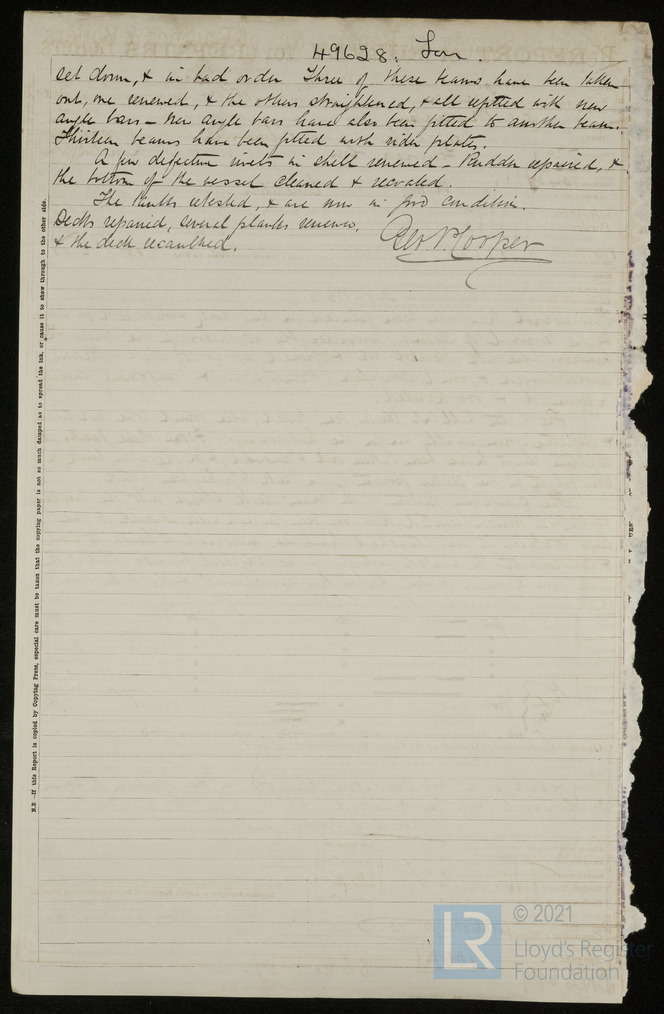 49628. Lon.
set down, & in bad order Three of these beams have been taken
out, one renewed, & the others straightened, & all refitted with new
angle bars - New angle bars have also been fitted to another beam.
Thirteen beams have been fitted with rider plates.
A few defective rivets in shell renewed - Rudder repaired, &
the bottom of the vessel cleaned & recoated.
The tanks retested, & are now in good condition.
Decks repaired, several planks renewed,
& the deck recaulked.
Cooper
N.B.-If this Report is copied by Copying Press, especial care must be taken that the copying paper is not so much damped as to spread the ink, or cause it to show through to the other side.
© 2021
LR
Lloyd's Register
Foundation